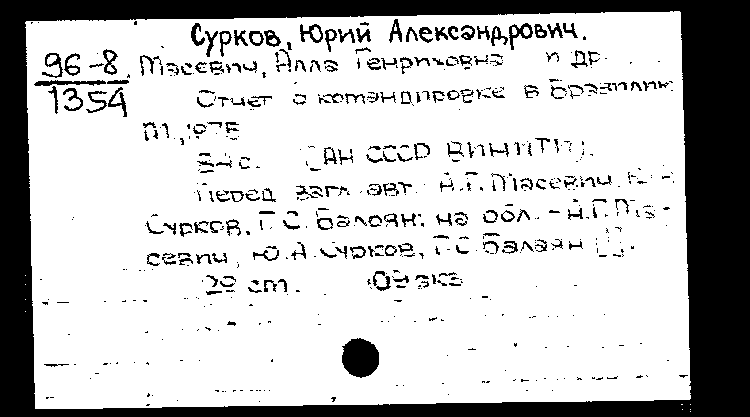 Сурков, Юрий Александрович.
96-8 Масевич, Алла Генриховна и др.
1354 Отчет о командировке в Бразилию
М., 1975
34 с. [АН СССР ВИНИТИ].
Перед загл. авт. А.Г. Масевич,
Сурков, Г.С. Балаян; на обл. - А.Г. Ма-
севич, Ю.А. Сурков, Г.С. Балаян
29 см.